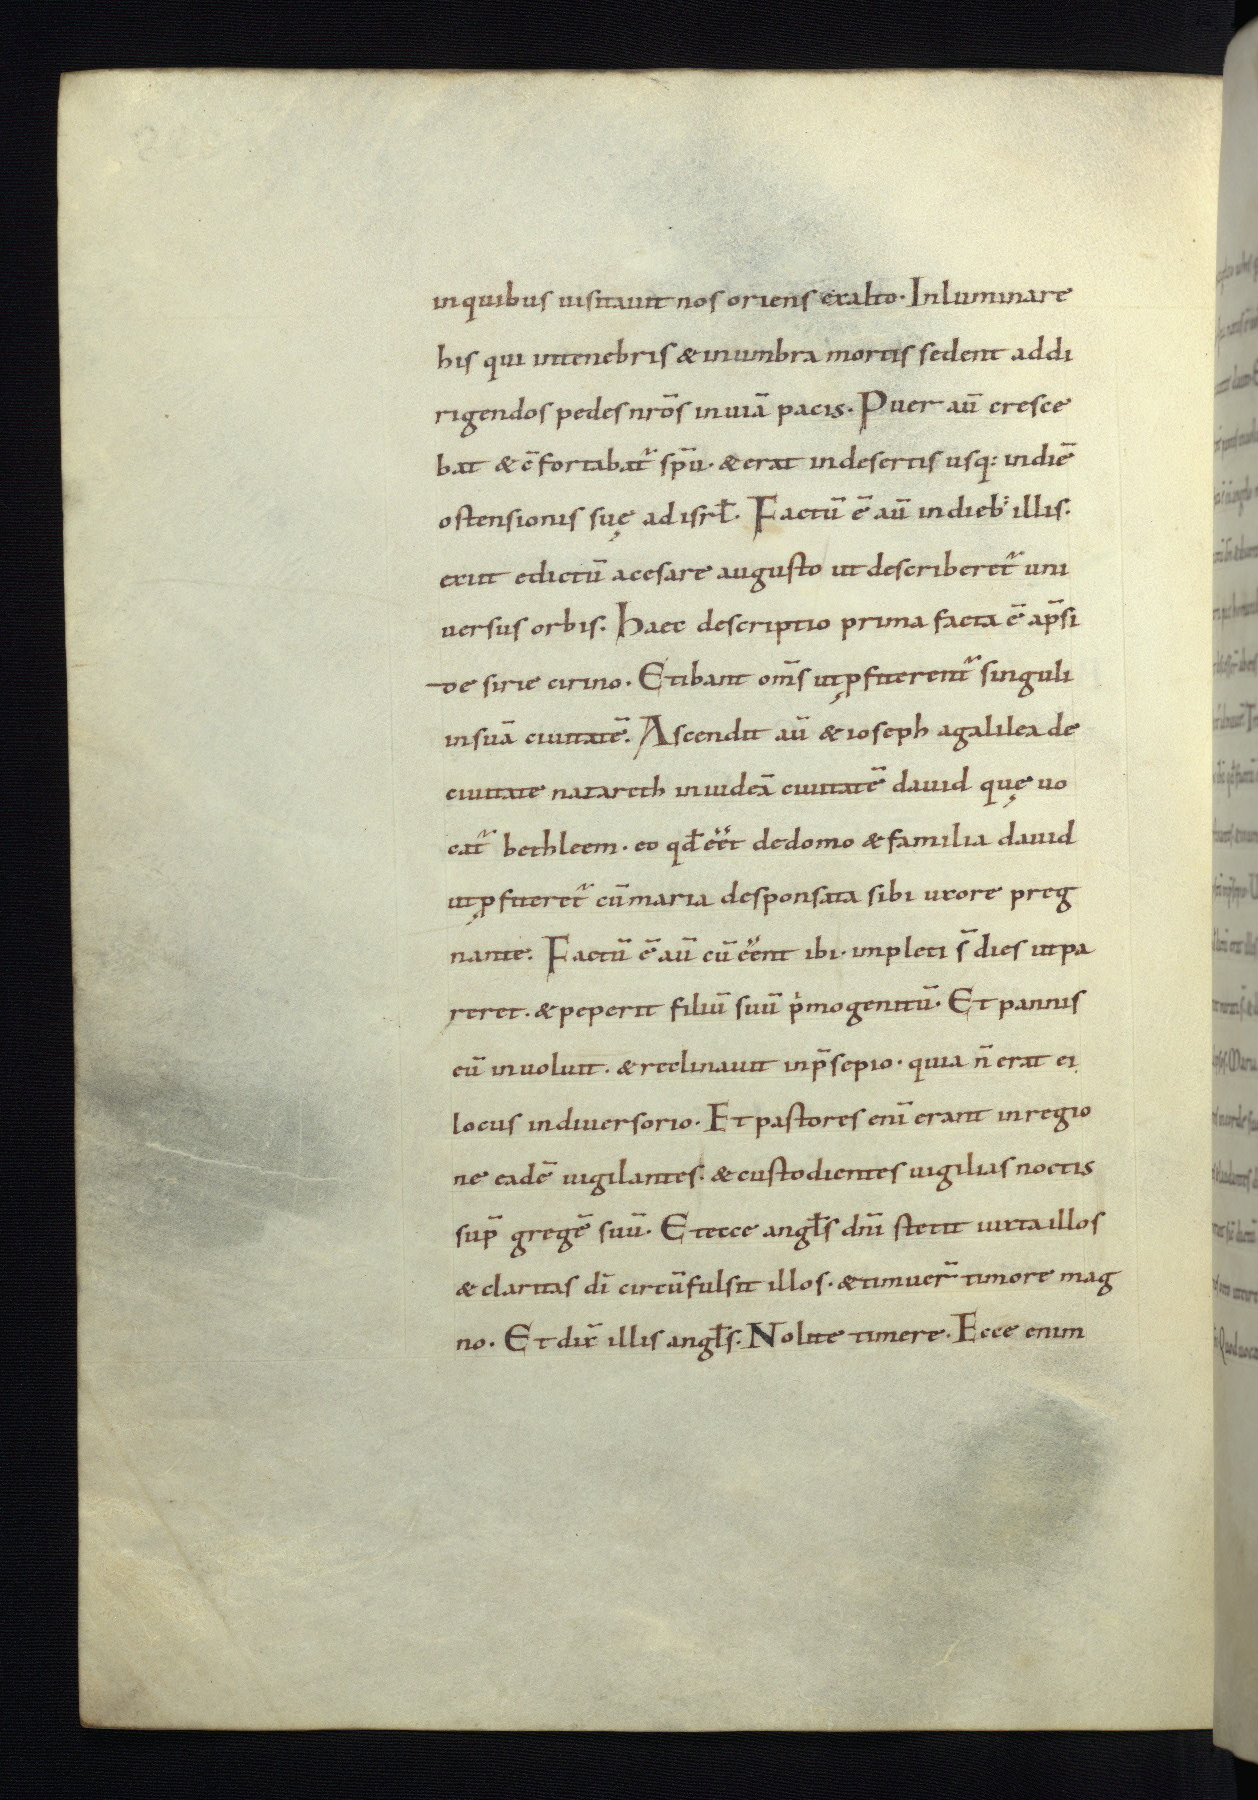 inquibus uisitauit nos oriens exalto. Inluminare
his qui intenebris & inumbra mortis sedent addi
rigendos pedes nrōs inuiā pacis. Puer aū cresce
bat & c̄fortabat᷑ sp̄u. & erat indesertis usq: indiē
ostensionis suę ad isrł. Factū ē aū indieb; illis.
exiit edictū acesare augusto ut describeret᷑ uni
uersus orbis. Haec descriptio prima facta ē ap̄si
de sirie cirino. Etibant om̄s utꝓfiterent᷑ singuli
insuā ciuitatē. Ascendit aū & ioseph agalilea de
ciuitate nazareth iniudeā ciuitatē dauid quę uo
cat᷑ bethleem. eo qđ eēt dedomo & familia dauid
utꝓfiteret᷑ cūmaria desponsata sibi uxore preg
nante. Factū ē aū cū eēnt ibi. impleti s̄ dies utpa
reret. & peperit filiū suū pⁱmogenitū. Et pannis
eū inuoluit. & reclinauit inp̄sepio. quia n̄ erat ei
locus indiuersorio. Et pastores enī erant inregio
ne eadē uigilantes. & custodientes uigilias noctis
sup̄ gregē suū. Etecce angłs dnī stetit iuxtaillos
& claritas dī circūfulsit illos. & timuer̄ timore mag
no. Et dix̄ illis angłs. Nolite timere. Ecce enim